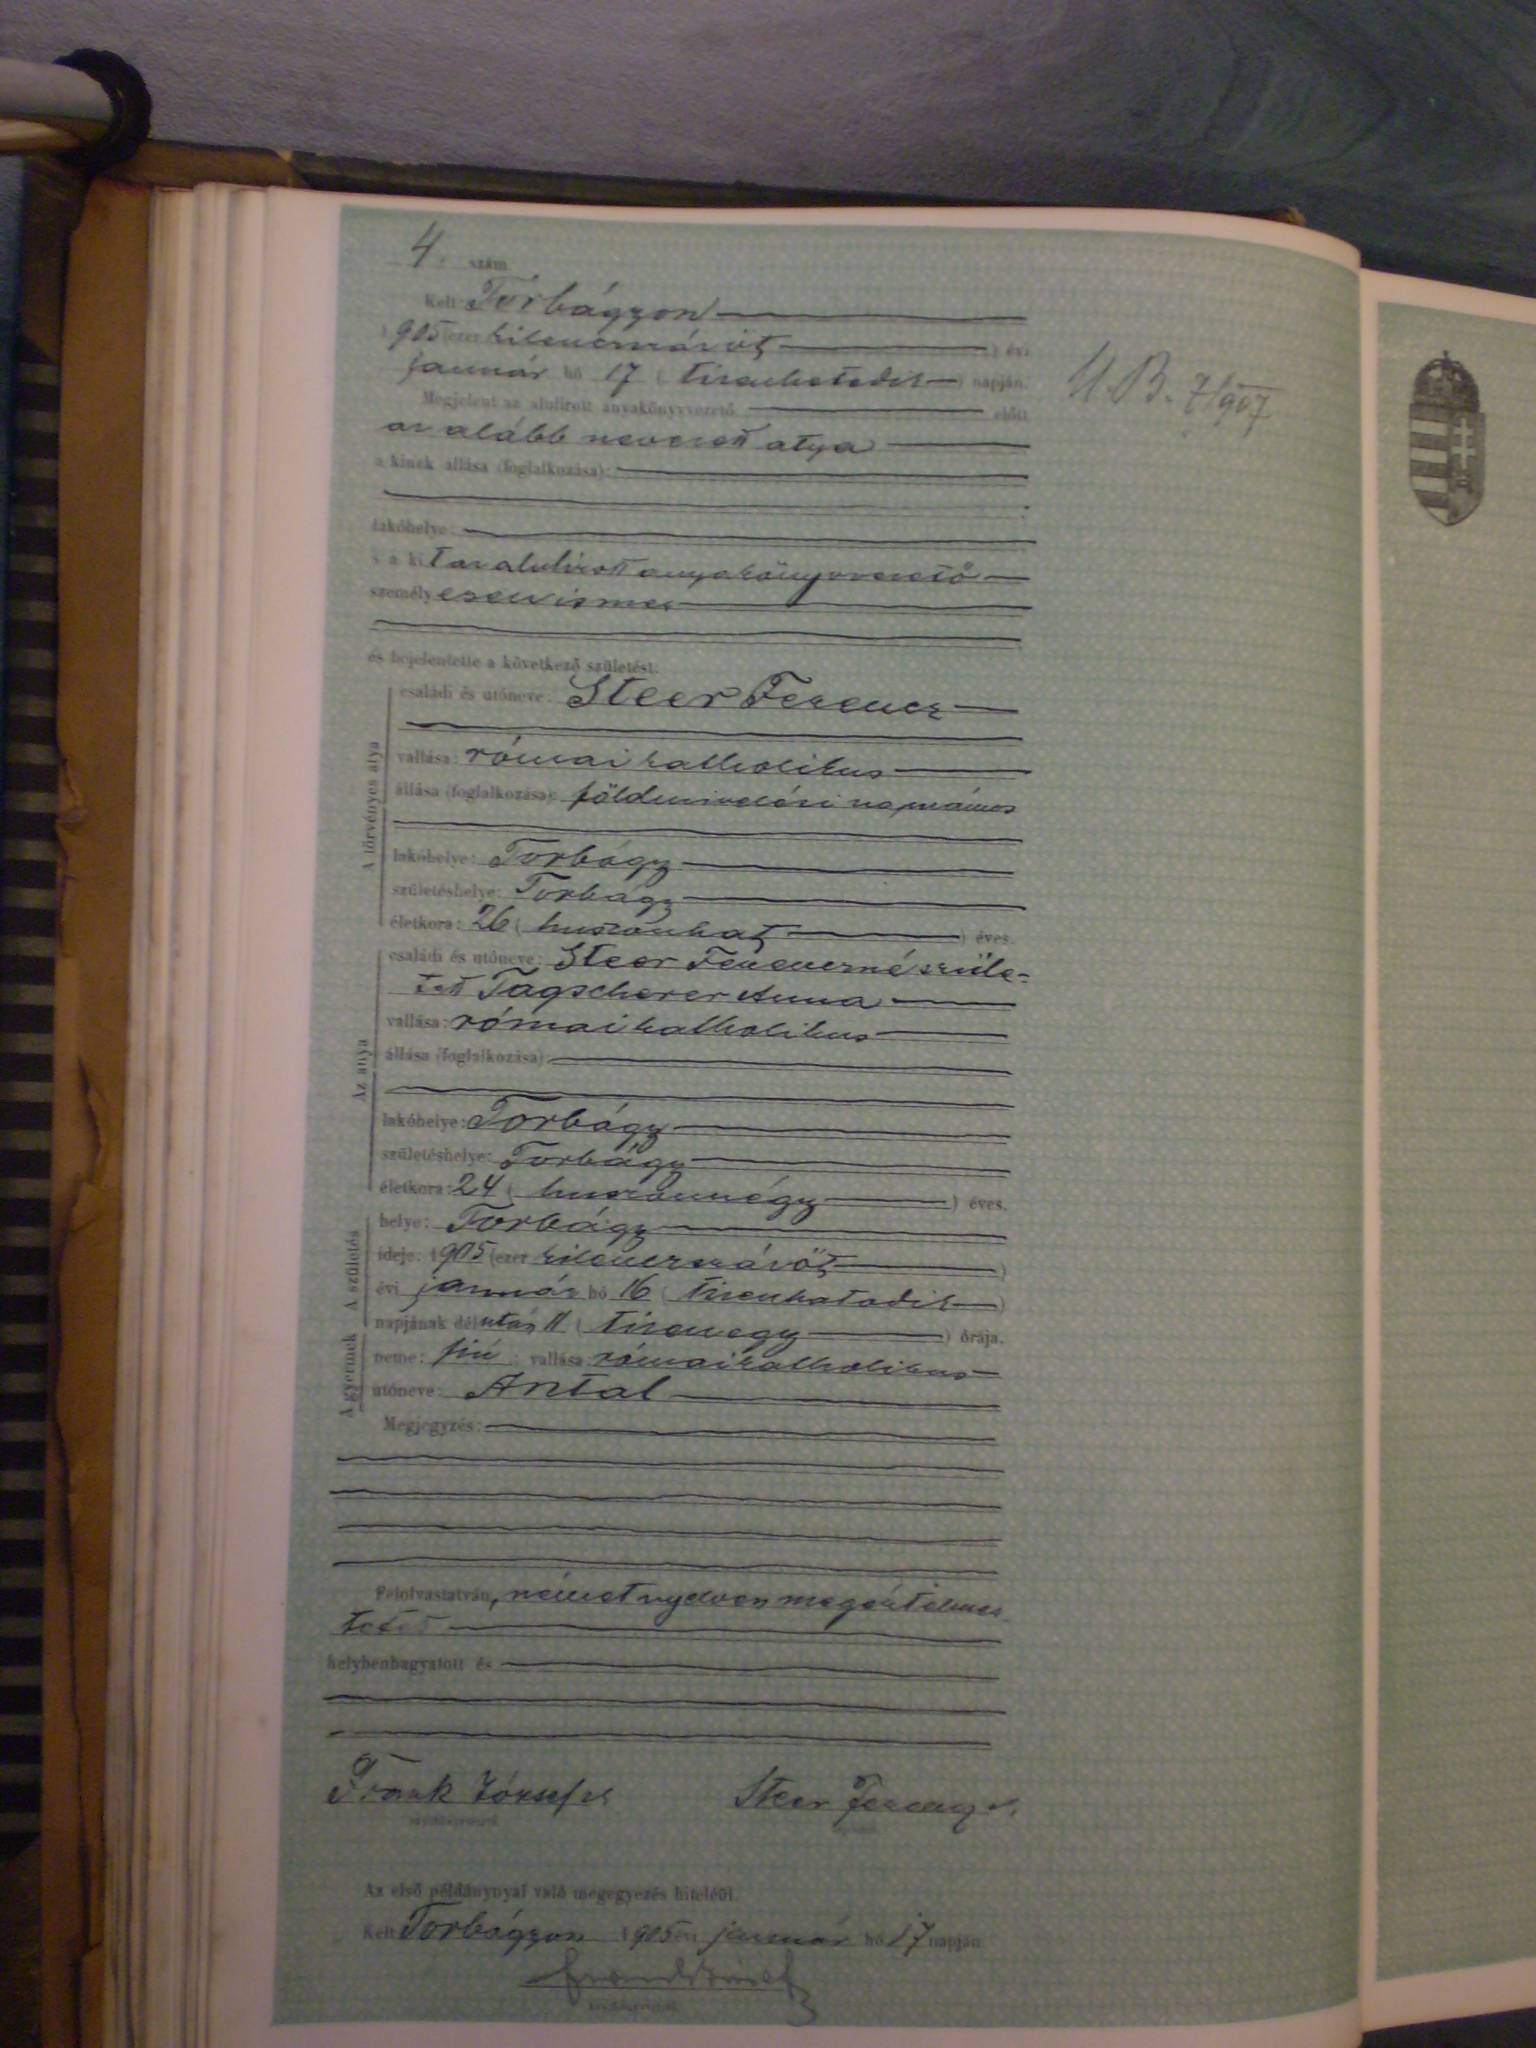 4. szám
Kelt: Torbágyon
1905 (ezer kilenczszázöt) évi
január hó 17 (tizenhetedik) napján.
Megjelent az alulirott anyakönyvvezető előtt
az alább nevezett atya
a kinek állása (foglalkozása):
lakóhelye:
s a kit az alulirott anyakönyvvezető
személyesen ismer
és bejelentette a következő születést:
A törvényes atya
családi és utóneve: Steer Ferencz
vallása: római katholikus
állása (foglalkozása): földmivelési napszámos
lakóhelye: Torbágy
születéshelye: Torbágy
életkora: 26 (huszonhat) éves.
Az anya
családi és utóneve: Steer Ferenczné szüle-
tett Tagscherer Anna
vallása: római katholikus
állása (foglalkozása):
lakóhelye: Torbágy
születéshelye: Torbágy
életkora: 24 (huszonnégy) éves.
A születés
helye: Torbágy
ideje: 1905 (ezer kilenczszázöt)
évi január hó 16 (tizenhatodik)
napjának délután 11 (tizenegy) órája.
A gyermek
neme: fiú; vallása: római katholikus
utóneve: Antal
Megjegyzés:
Felolvastatván, német nyelven megértelmez
helybenhagyatott és
Frank József Steer Ferencz
anyakönyvvezető
Az első példánynyal való megegyezés hiteléül.
Kelt Torbágyon 1905 évi január hó 17 napján
anyakönyvvezető